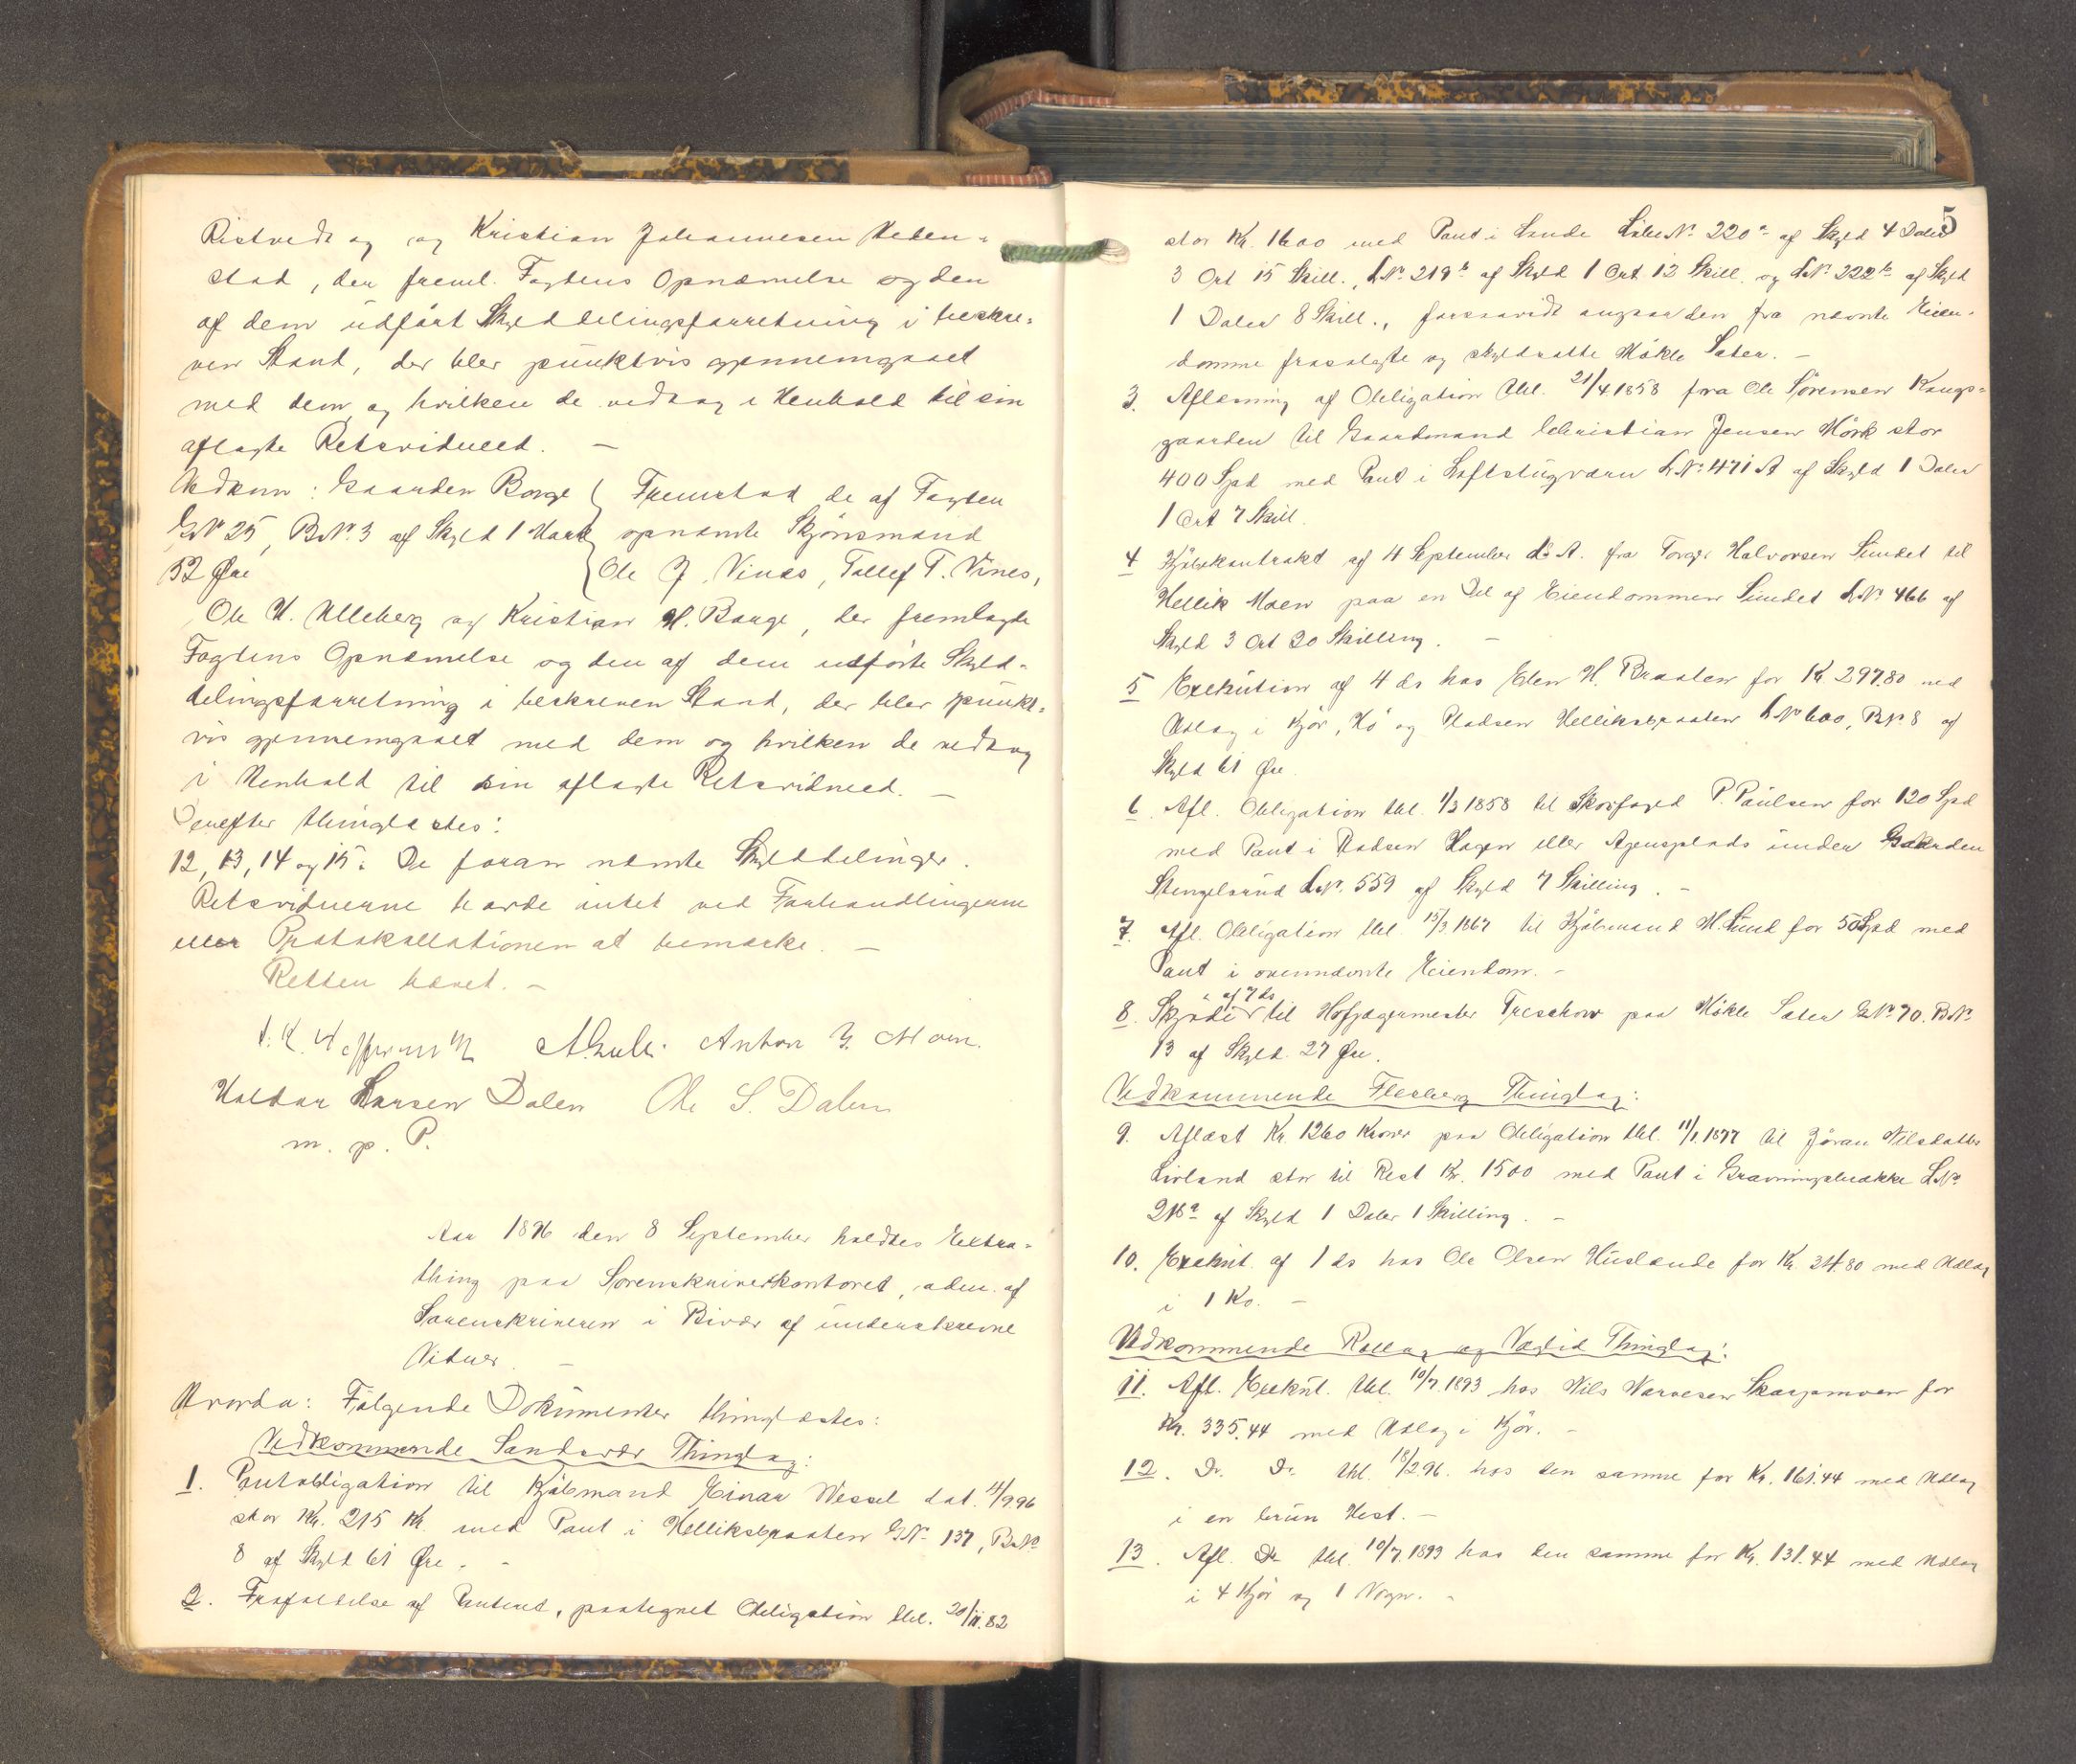 Ristvedt og og Kristian Johannesen Heden-
stad, der freml. Fogdens Opnævnelse og den
af dem udført Skylddelingsforretning i beskre-
ven Stand, der blev punktvis gjennemgaaet
med dem og hvilken de vedtog i Henhold til sin
aflagte Retsvidneed. —
Vedkom: Gaarden Borge { Fremstod de af Fogden
GNr 25, BNr. 3 af Skyld 1 Mark opnævnte Skjönsmænd
52 Øre { Ole J. Vinæs, Tollef T. Vines,
Ole H. Ulleberg og Kristian H. Borge, der fremlagde
Fogdens Opnævnelse og den af dem udförte Skyld-
delingsforretning i beskreven Stand, der blev punkt-
vis gjennemgaaet med dem og hvilken de vedtog
i Henhold til sin aflagte Retsvidneed. —
Derefter thinglæstes:
12, 13, 14 og 15: De foran nævnte Skylddelinger.
Retsvidnerne havde intet ved Forhandlingerne
eller Protokollationen at bemærke. —
Retten hævet. —
Anton G. Moen.
Haldor Larsen Dalen Ole S. Dalen
m. p. P.
Aar 1896 den 8 September holdtes Extra-
thing paa Sorenskriverkontoret, adm. af
Sorenskriveren i Bivær af underskrevne
Vidner. —
Hvorda: Fölgende Dokumenter thinglæstes:
Vedkommende Sandsvær Thinglag:
1. Pantobligation til Kjöbmand Einar Wessel dat. 4/9.96
stor Kr. 215 Kr. med Pant i Helliksbraaten GNr. 137, BNr.
8 af Skyld 61 Øre. —
2. Frafaldelse af Panteret, paategnet Obligation thl. 20/11.82
5
stor Kr. 1600 med Pant i Sunde LNr. 220a af Skyld 4 Daler
3 Ort 15 Skill., LNr. 219b af Skyld 1 Ort 12 Skill. og LNr. 222b af Skyld
1 Daler 8 Skill., forsaavidt angaar den fra nævnte Eien-
domme frasolgte og skyldsatte Mökle Sæter. —
3. Aflæsning af Obligation thl. 21/4.1858 fra Ole Sörensen Kongs-
gaarden til Gaardmand Christian Jensen Mörk stor
400 Spd med Pant i Loftstugværn LNr. 471 A af Skyld 1 Daler
1 Ort 7 Skill.
4 Kjöbekontrakt af 4 September d. A. fra Torger Halvorsen Sundet til
Hellik Moen paa en Del af Eiendommen Sundet LNr. 466 af
Skyld 3 Ort 20 Skilling. —
5 Exekution af 4 ds hos Elen H. Braaten for Kr 297.80 med
Udlæg i Kjör, Hö og Pladsen Helliksbraaten LNr 600, BNr. 8 af
Skyld 61 Øre.
6. Afl. Obligation thl. 1/3 1858 til Skovfoged P. Paulsen for 120 Spd
med Pant i Pladsen Hagen eller Agensplads under Gaarden
Stengelsrud LNr. 559 af Skyld 7 Skilling. —
7. Afl. Obligation thl. 15/3 1867 til Kjöbmand M. Sund for 50 Spd med
Pant i ovennævnte Eiendom. —
8. Skjöde af 7 ds til Hofjægermester Treschow paa Mökle Sæter GNr. 70. BNr.
13 af Skyld 27 Øre.
Vedkommende Flesberg Thinglag:
9. Aflæst Kr. 1260 Kroner paa Obligation thl. 11/1.1877 til Jöran Nilsdatter
Lirland stor til Rest Kr. 1500 med Pant i Gravningsbrække LNr.
218a af Skyld 1 Daler 1 Skilling. —
10. Exekut. af 1 ds hos Ole Olsen Huslende for Kr. 24.80 med Udlæg
i 1 Ko. —
Vedkommende Rollag og Veglid Thinglag:
11. Afl. Exekut. thl. 10/7.1893 hos Nils Narvesen Skarpmoen for
Kr. 335.44 med Udlæg i Kjör. —
12. Do. Do. thl. 18/2.96. hos den samme for Kr. 161.44 med Udlæg
i en brun Hest. —
13. Afl. Do thl. 10/7.1893 hos den samme for Kr. 131.44 med Udlæg
i 4 Kjör og 1 Vogn. —